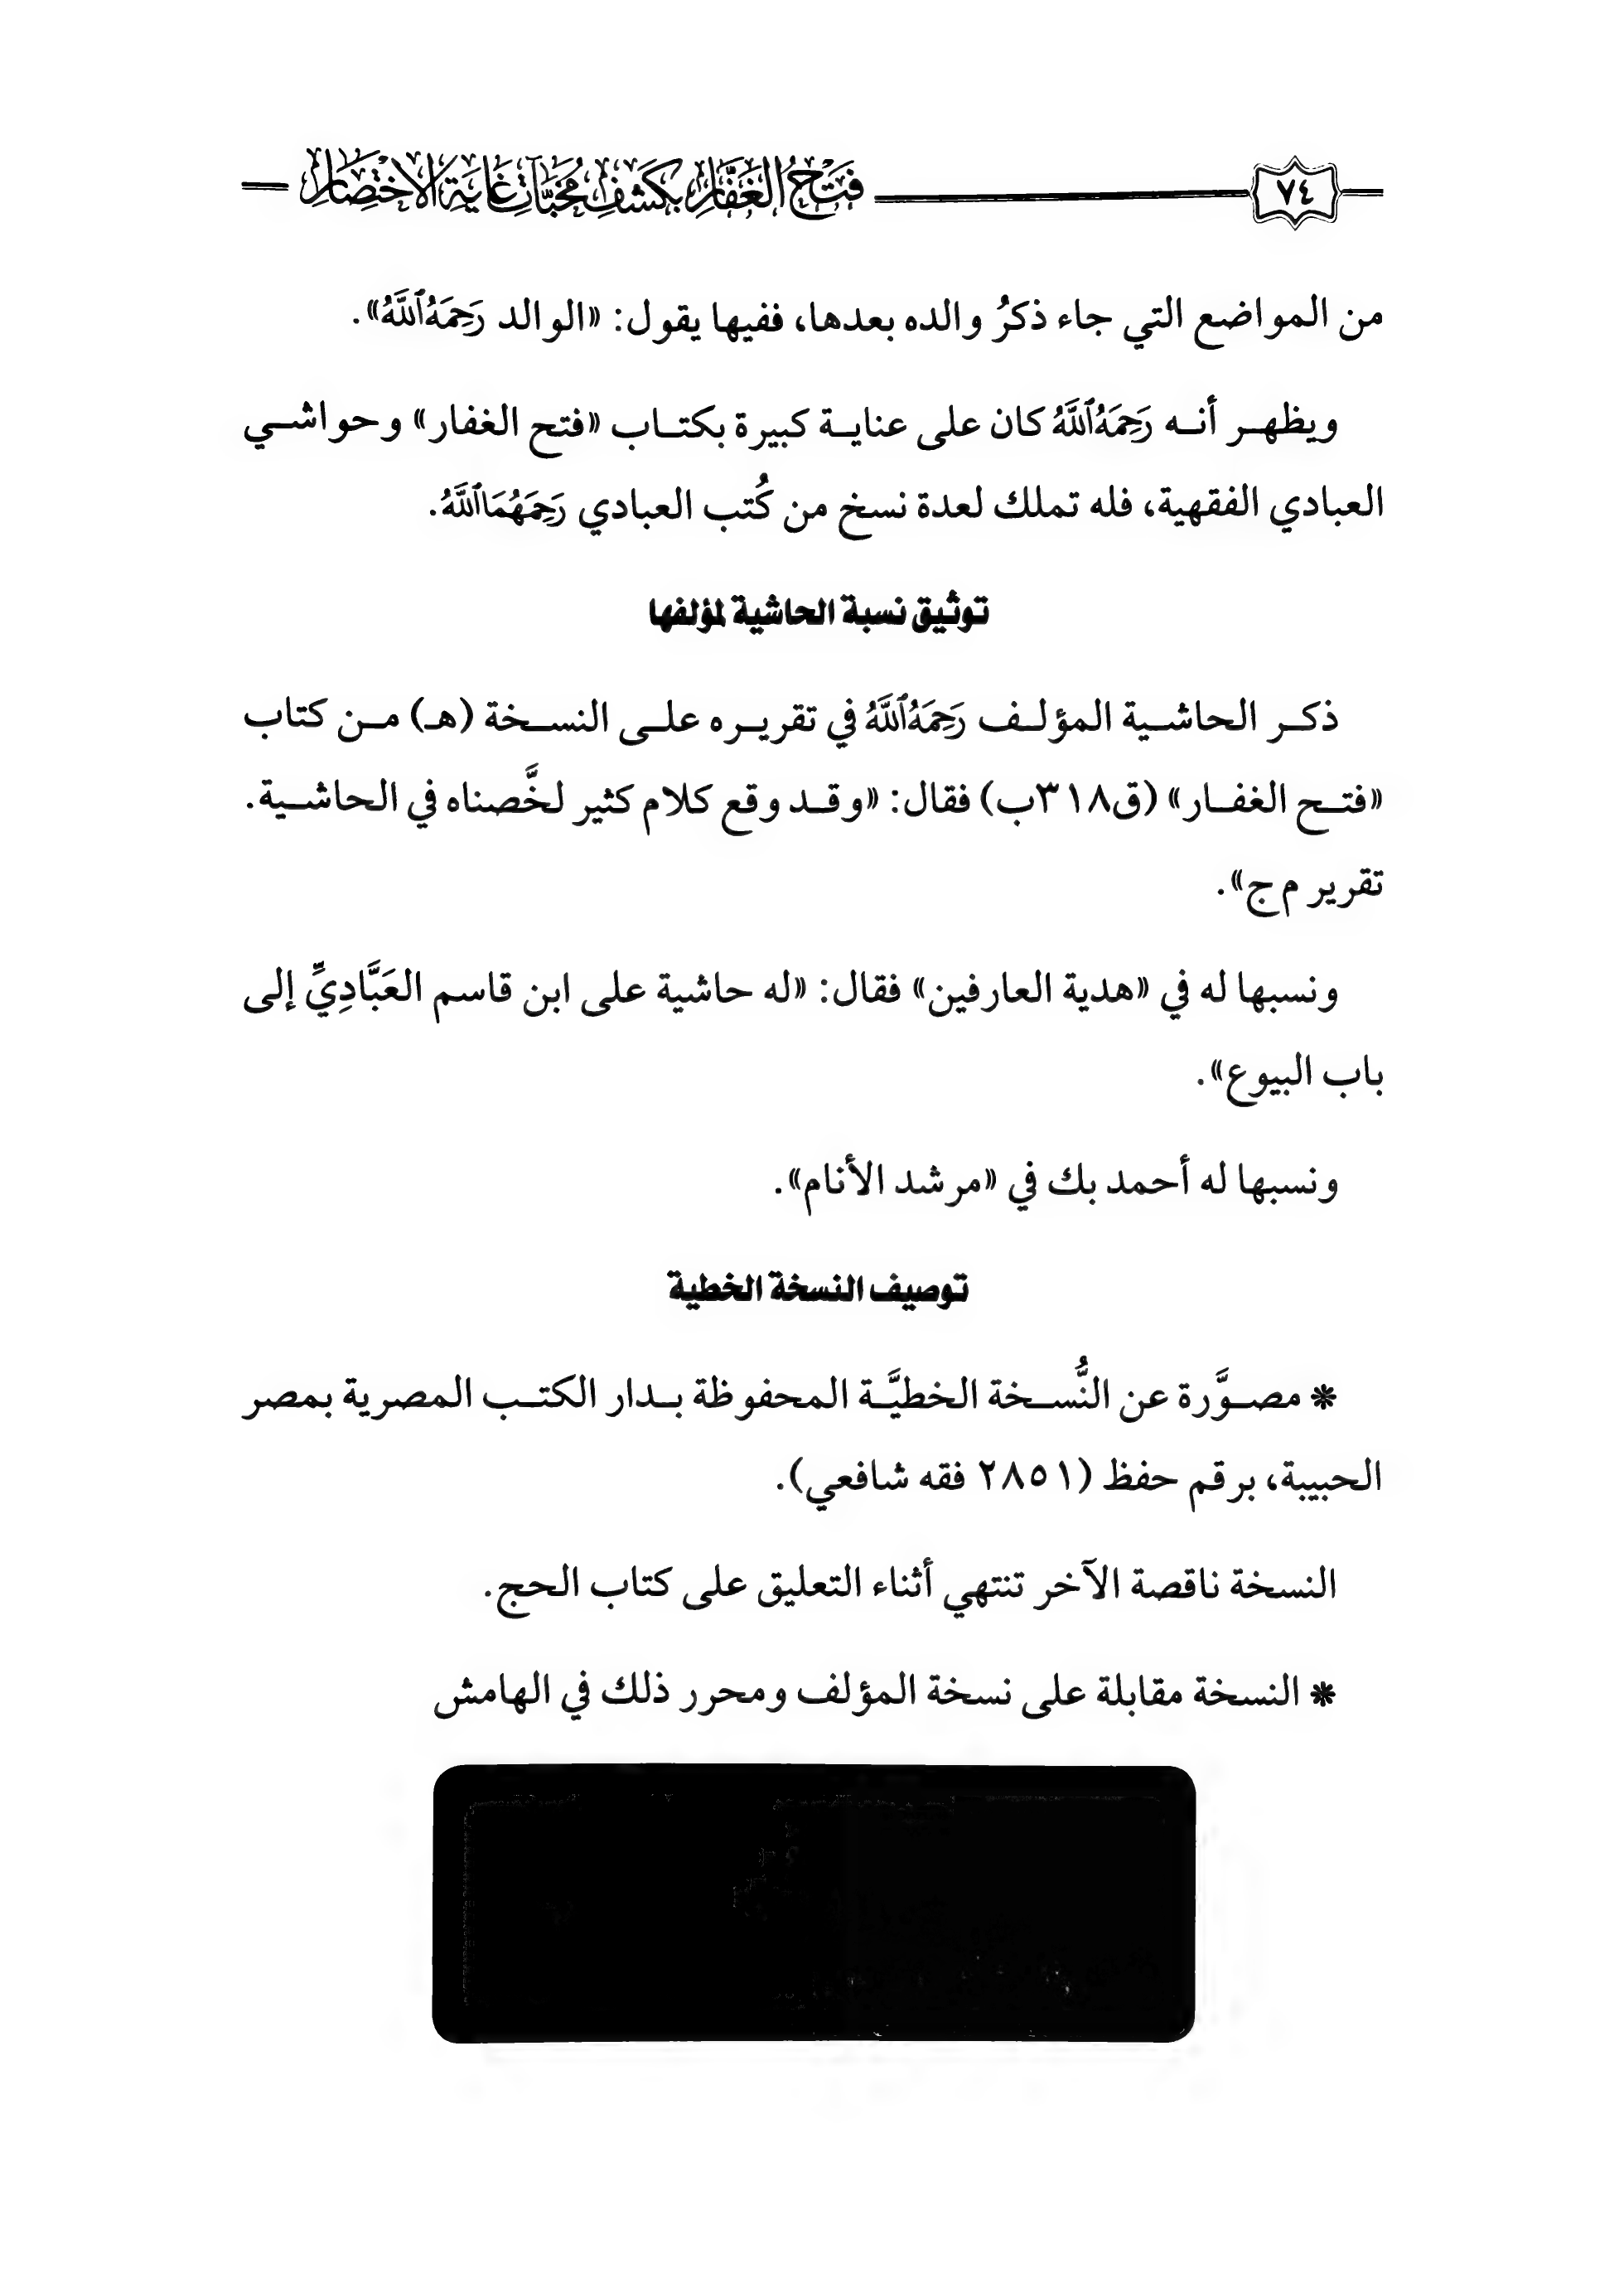 ٧٤
فَتْحُ الغَفَّارِ بِكَشْفِ مُخَبَّآتِ غَايَةِ الِاخْتِصَارِ
من المواضع التي جاء ذكرُ والده بعدها، ففيها يقول: «الوالد رَحِمَهُ ٱللَّهُ».
ويظهر أنه رَحِمَهُ ٱللَّهُ كان على عناية كبيرة بكتاب «فتح الغفار» وحواشي
العبادي الفقهية، فله تملك لعدة نسخ من كُتب العبادي رَحِمَهُمَا ٱللَّهُ.
توثيق نسبة الحاشية لمؤلفها
ذكر الحاشية المؤلف رَحِمَهُ ٱللَّهُ في تقريره على النسخة (هـ) من كتاب
«فتح الغفار» (ق٣١٨ب) فقال: «وقد وقع كلام كثير لخَّصناه في الحاشية.
تقرير م ج».
ونسبها له في «هدية العارفين» فقال: «له حاشية على ابن قاسم العَبَّادِيِّ إلى
باب البيوع».
ونسبها له أحمد بك في «مرشد الأنام».
توصيف النسخة الخطية
* مصوَّرة عن النُّسخة الخطيَّة المحفوظة بدار الكتب المصرية بمصر
الحبيبة، برقم حفظ (٢٨٥١ فقه شافعي).
النسخة ناقصة الآخر تنتهي أثناء التعليق على كتاب الحج.
* النسخة مقابلة على نسخة المؤلف ومحرر ذلك في الهامش